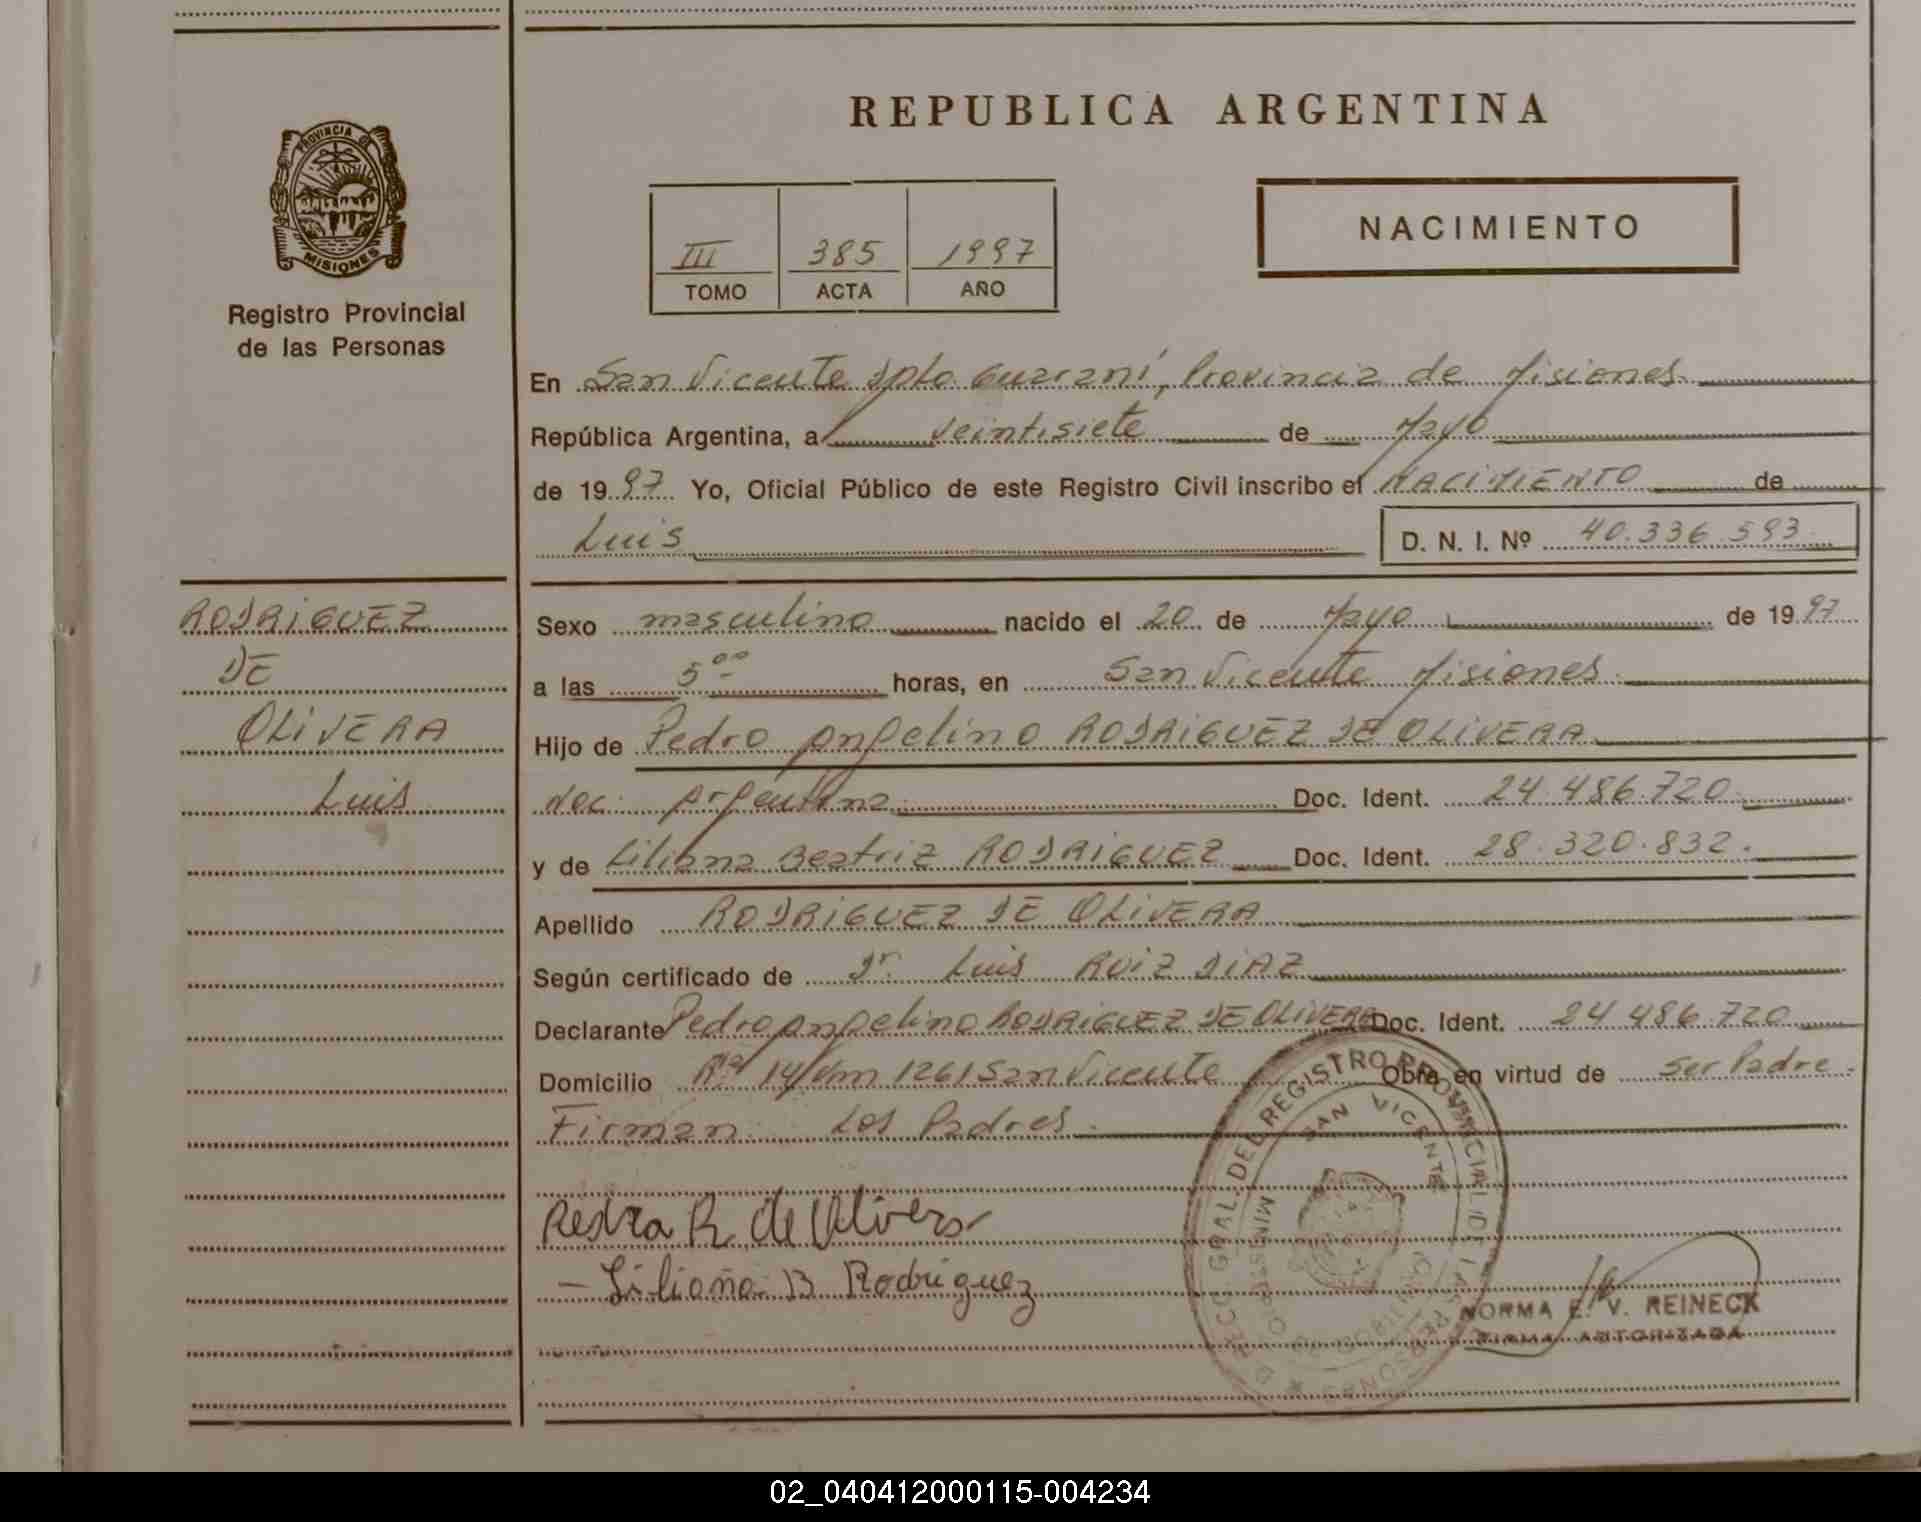 REPUBLICA ARGENTINA
PROVINCIA DE
MISIONES
Registro Provincial
de las Personas
III 385 1997
TOMO ACTA AÑO
NACIMIENTO
En San Vicente Dpto. Guaraní, Provincia de Misiones
República Argentina, a veintisiete de Mayo
de 1997 Yo, Oficial Público de este Registro Civil inscribo el NACIMIENTO de
Luis D. N. I. Nº 40.336.593
RODRIGUEZ
DE
OLIVERA
Luis
Sexo masculino nacido el 20 de Mayo de 1997
a las 5 00 horas, en San Vicente Misiones
Hijo de Pedro Angelino RODRIGUEZ DE OLIVERA
Nac. Argentina Doc. Ident. 24.486.720
y de Liliana Beatriz RODRIGUEZ Doc. Ident. 28.320.832.
Apellido RODRIGUEZ DE OLIVERA
Según certificado de Dr. Luis RUIZ DIAZ
Declarante Pedro Angelino RODRIGUEZ DE OLIVERA Doc. Ident. 24.486.720
Domicilio Rta 14 Km 1261 San Vicente Obra en virtud de ser Padre.
Firman: Los Padres.
Pedro R. de Olivera
Liliana B Rodriguez
DIRECC. GRAL. DEL REGISTRO PROVINCIAL DE LAS PERSONAS
SAN VICENTE
MISIONES
NORMA E. V. REINECK
FIRMA AUTORIZADA
02_040412000115-004234